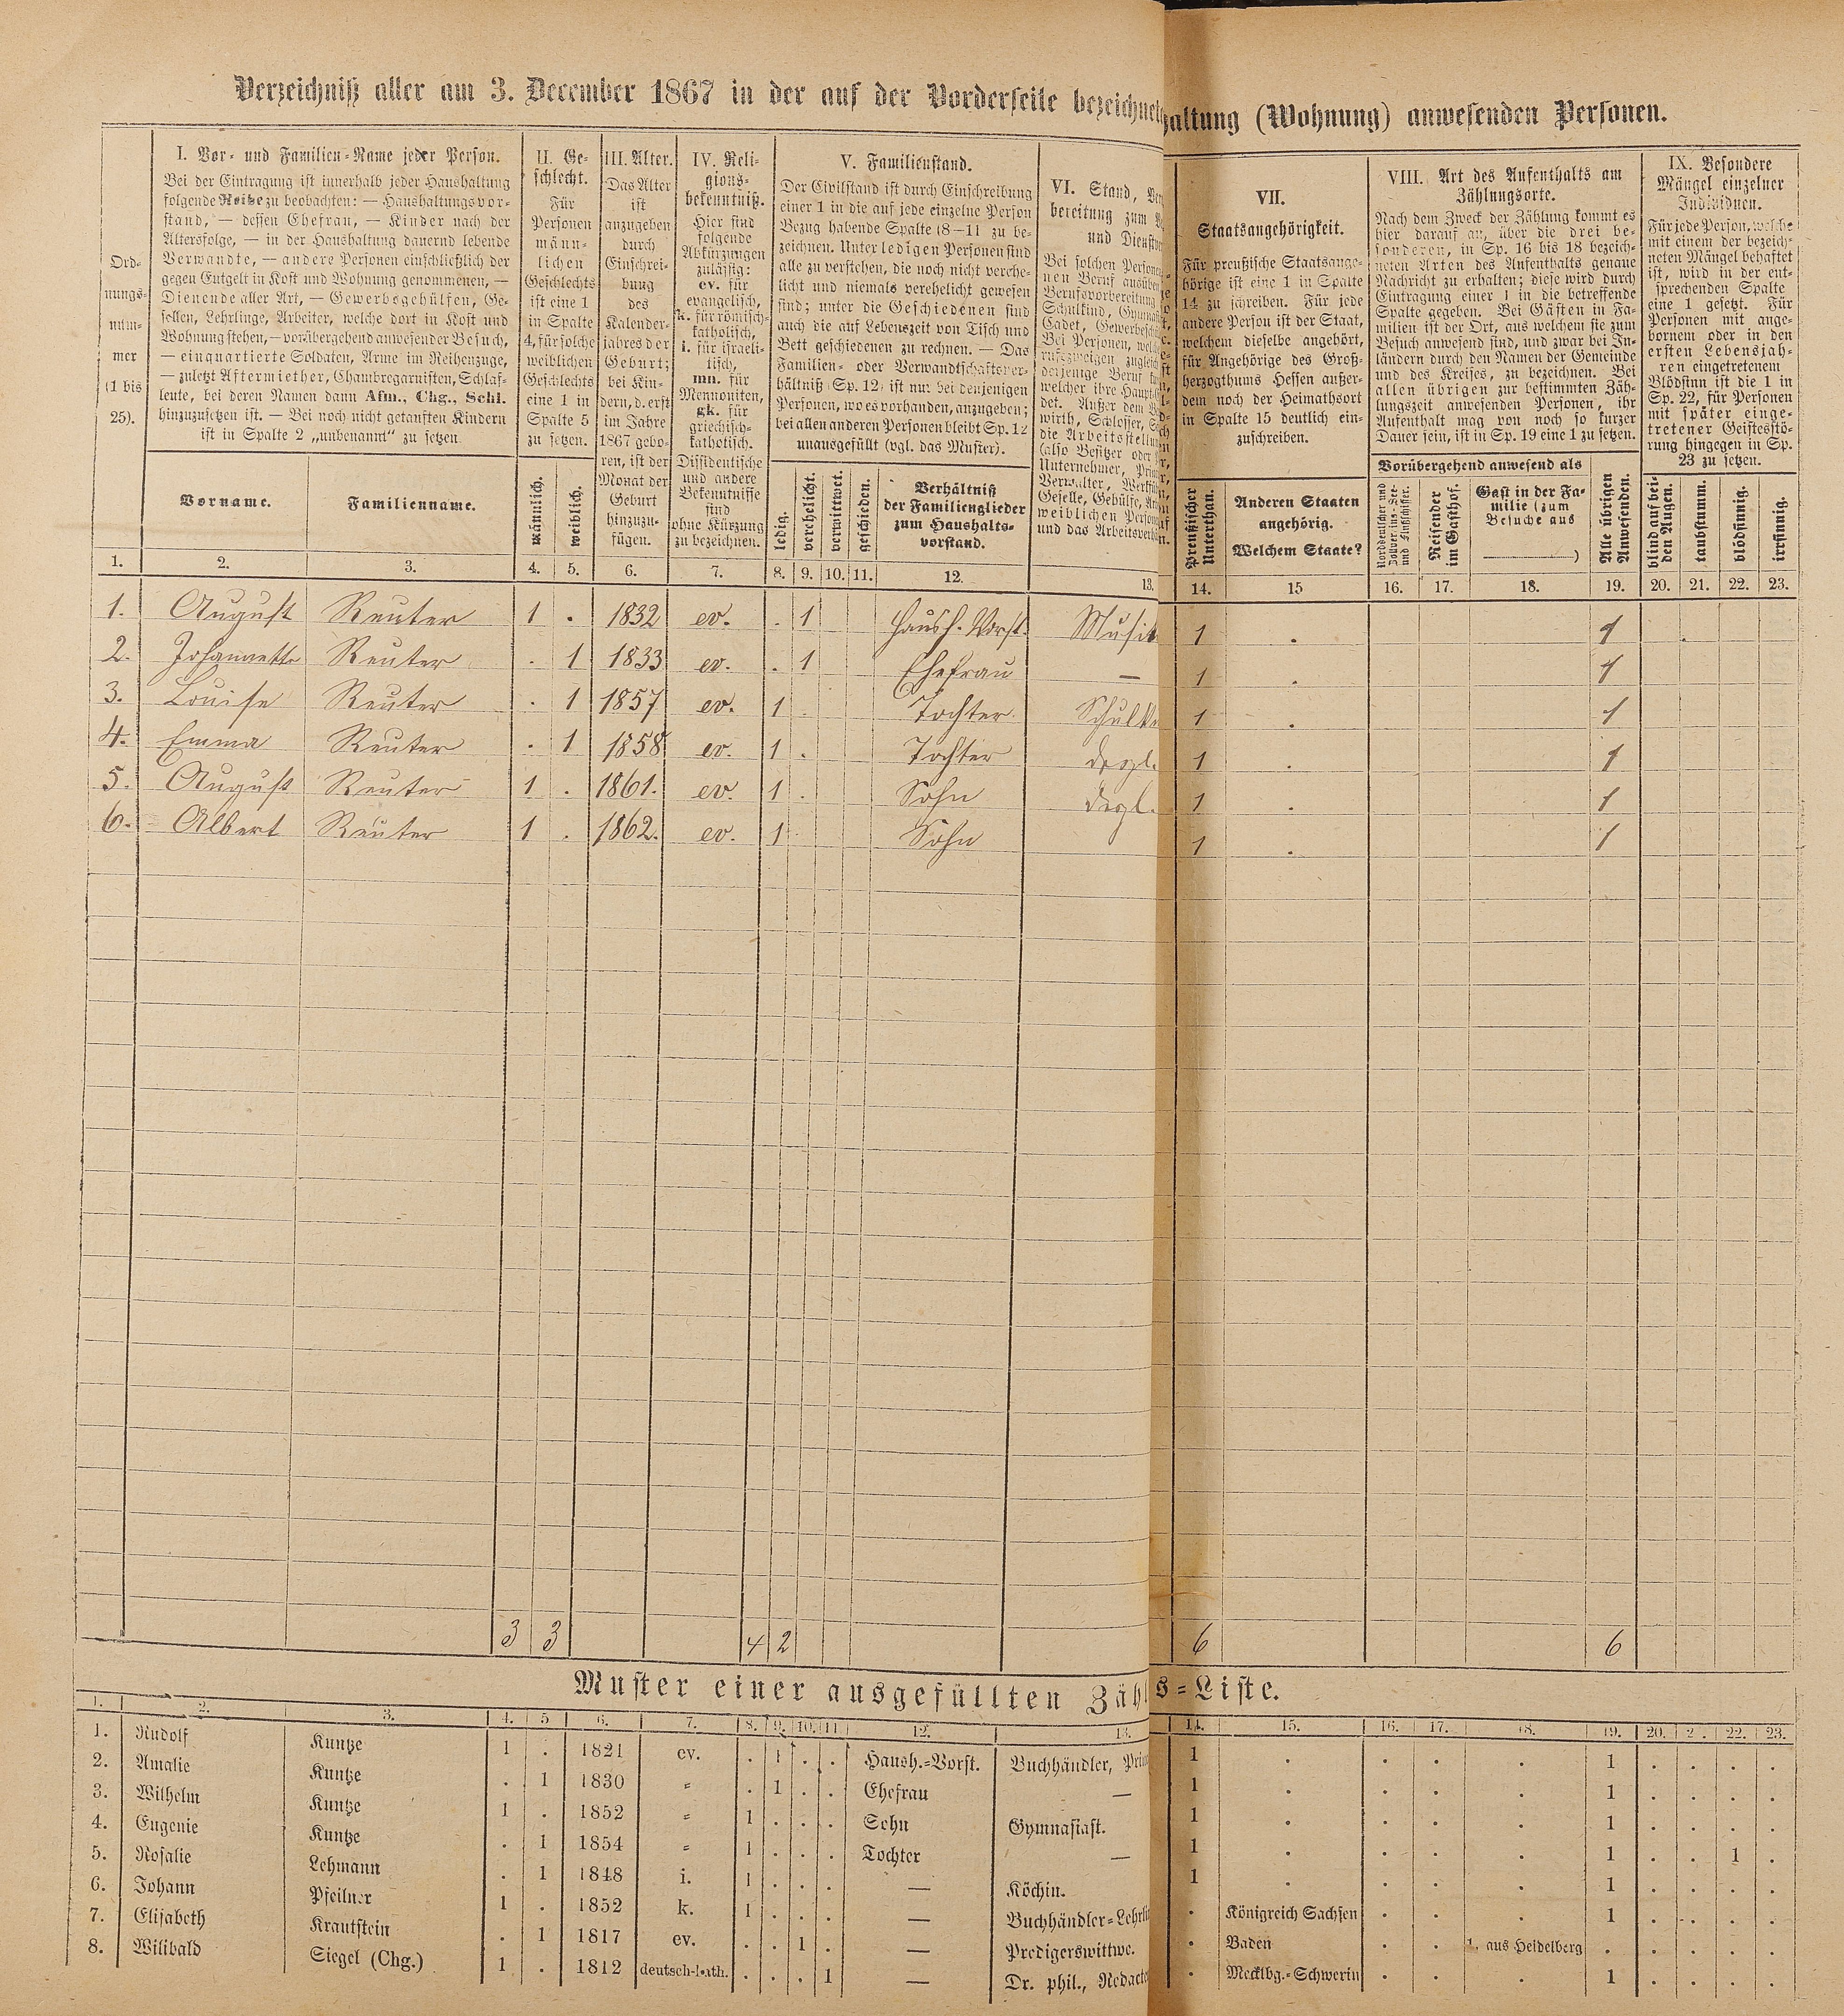 Verzeichniß aller am 3. December 1867 in der auf der Vorderseite bezeichnet
haltung (Wohnung) anwesenden Personen.
Ord-
nungs-
num-
mer
(1 bis
25).
I. Vor- und Familien-Name jeder Person.
Bei der Eintragung ist innerhalb jeder Haushaltung
folgende Reihe zu beobachten: — Haushaltungsvor-
stand, — dessen Ehefrau, — Kinder nach der
Altersfolge, — in der Haushaltung dauernd lebende
Verwandte, — andere Personen einschließlich der
gegen Entgelt in Kost und Wohnung genommenen, —
Dienende aller Art, — Gewerbsgehülfen, Ge-
sellen, Lehrlinge, Arbeiter, welche dort in Kost und
Wohnung stehen, — vorübergehend anwesender Besuch,
— einquartierte Soldaten, Arme im Reihenzuge,
— zuletzt Aftermiether, Chambregarnisten, Schlaf-
leute, bei deren Namen dann Afm., Chg., Schl.
hinzuzusetzen ist. — Bei noch nicht getauften Kindern
ist in Spalte 2 „unbenannt“ zu setzen.
Vorname.
Familienname.
II. Ge-
schlecht.
Für
Personen
männ-
lichen
Geschlechts
ist eine 1
in Spalte
4, für solche
weiblichen
Geschlechts
eine 1 in
Spalte 5
zu setzen.
männlich.
weiblich.
III. Alter.
Das Alter
ist
anzugeben
durch
Einschrei-
bung
des
Kalender-
jahres der
Geburt;
bei Kin-
dern, d. erst
im Jahre
1867 gebo-
ren, ist der
Monat der
Geburt
hinzuzu-
fügen.
IV. Reli-
gions-
bekenntniß.
Hier sind
folgende
Abkürzungen
zulässig:
ev. für
evangelisch,
k. für römisch-
katholisch,
i. für israeli-
tisch,
mn. für
Mennoniten,
gk. für
griechisch-
katholisch.
Dissidentische
und andere
Bekenntnisse
sind
ohne Kürzung
zu bezeichnen.
V. Familienstand.
Der Civilstand ist durch Einschreibung
einer 1 in die auf jede einzelne Person
Bezug habende Spalte (8—11) zu be-
zeichnen. Unter ledigen Personen sind
alle zu verstehen, die noch nicht verehe-
licht und niemals verehelicht gewesen
sind; unter die Geschiedenen sind
auch die auf Lebenszeit von Tisch und
Bett geschiedenen zu rechnen. — Das
Familien- oder Verwandtschaftsver-
hältniß (Sp. 12) ist nur bei denjenigen
Personen, wo es vorhanden, anzugeben;
bei allen anderen Personen bleibt Sp. 12
unausgefüllt (vgl. das Muster).
ledig.
verehelicht.
verwittwet.
geschieden.
Verhältniß
der Familienglieder
zum Haushalts-
vorstand.
VI. Stand,
bereitung zum
und Dienst
Bei solchen Personen
nen Beruf ausüben
Berufsvorbereitung
Schulkind,
Cadet,
Bei Personen,
rufszweigen zugleich
derjenige Beruf
welcher ihre Haupt
det. Außer dem
wirth, Schlosser,
die Arbeitsstellung
(also Besitzer oder
Unternehmer,
Verwalter,
Geselle, Gehülfe,
weiblichen Person
und das
VII.
Staatsangehörigkeit.
Für preußische Staatsange-
hörige ist eine 1 in Spalte
14 zu schreiben. Für jede
andere Person ist der Staat,
welchem dieselbe angehört,
für Angehörige des Groß-
herzogthums Hessen außer-
dem noch der Heimathsort
in Spalte 15 deutlich ein-
zuschreiben.
Preußischer
Unterthan.
Anderen Staaten
angehörig.
Welchem Staate?
VIII. Art des Aufenthalts am
Zählungsorte.
Nach dem Zweck der Zählung kommt es
hier darauf an, über die drei be-
sonderen, in Sp. 16 bis 18 bezeich-
neten Arten des Aufenthalts genaue
Nachricht zu erhalten; diese wird durch
Eintragung einer 1 in die betreffende
Spalte gegeben. Bei Gästen in Fa-
milien ist der Ort, aus welchem sie zum
Besuch anwesend sind, und zwar bei In-
ländern durch den Namen der Gemeinde
und des Kreises, zu bezeichnen. Bei
allen übrigen zur bestimmten Zäh-
lungszeit anwesenden Personen, ihr
Aufenthalt mag von noch so kurzer
Dauer sein, ist in Sp. 19 eine 1 zu setzen.
Vorübergehend anwesend als
Norddeutscher und
Zollvereins-See-
und Flußschiffer.
Reisender
im Gasthof.
Gast in der Fa-
milie (zum
Besuche aus
)
Alle übrigen
Anwesenden.
IX. Besondere
Mängel einzelner
Individuen.
Für jede Person, welche
mit einem der bezeich-
neten Mängel behaftet
ist, wird in der ent-
sprechenden Spalte
eine 1 gesetzt. Für
Personen mit ange-
bornem oder in den
ersten Lebensjah-
ren eingetretenem
Blödsinn ist die 1 in
Sp. 22, für Personen
mit später einge-
tretener Geistesstö-
rung hingegen in Sp.
23 zu setzen.
blind auf bei-
den Augen.
taubstumm.
blödsinnig.
irrsinnig.
1. 2. 3. 4. 5. 6. 7. 8. 9. 10. 11. 12. 13. 14. 15 16. 17. 18. 19. 20. 21. 22. 23.
1. August Reuter 1 . 1832 ev. . 1 Haush. Vorst. Musik 1 . 1
2. Johannette Reuter . 1 1833 ev. . 1 Ehefrau — 1 . 1
3. Louise Reuter . 1 1857 ev. 1 . Tochter Schulk 1 . 1
4. Emma Reuter . 1 1858 ev. 1 . Tochter desgl. 1 . 1
5. August Reuter 1 . 1861. ev. 1 . Sohn desgl. 1 . 1
6. Albert Reuter 1 . 1862. ev. 1 Sohn 1 . 1
3 3 4 2 6 6
Muster einer ausgefüllten Zähl
s-Liste.
1. 2. 3. 4. 5 6. 7. 8. 9. 10. 11 12. 13. 14. 15. 16. 17. 18. 19. 20. 2. 22. 23.
1. Rudolf Kuntze 1 . 1821 ev. . 1 . . Haush.-Vorst. Buchhändler, Prin 1 . . . . 1 . . . .
2. Amalie Kuntze . 1 1830 " . 1 . . Ehefrau — 1 . . . . 1 . . . .
3. Wilhelm Kuntze 1 . 1852 " 1 . . . Sohn Gymnasiast. 1 . . . . 1 . . . .
4. Eugenie Kuntze . 1 1854 " 1 . . . Tochter — 1 . . . . 1 . . 1 .
5. Rosalie Lehmann . 1 1848 i. 1 . . . — Köchin. 1 . . . . 1 . . . .
6. Johann Pfeilner 1 . 1852 k. 1 . . . — Buchhändler-Lehrli . Königreich Sachsen . . . 1 . . . .
7. Elisabeth Krautstein . 1 1817 ev. . . 1 . — Predigerswittwe. . Baden . . 1. aus Heidelberg . . . . .
8. Wilibald Siegel (Chg.) 1 . 1812 deutsch-kath. . . . 1 — Dr. phil., Redacte . Mecklbg.-Schwerin . . . 1 . . . .